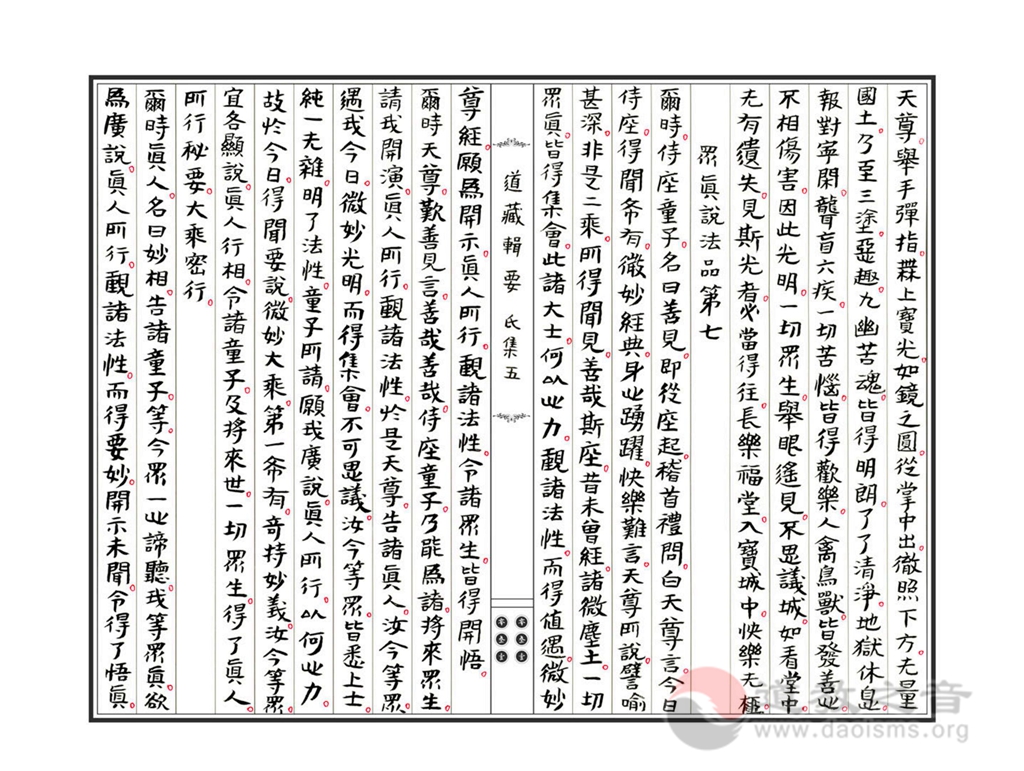 天尊舉手彈指冀上寶光如鏡之圓從掌中出徹照下方无量
國土乃至三塗惡趣九幽苦魂皆得明朗了了清淨地獄休息
報對寧閑聾盲六疾一切苦惱皆得歡樂人禽鳥獸皆發善心
不相傷害因此光明一切眾生舉眼遙見不思議城如看堂中
无有遺失見斯光者必當得往長樂福堂入寶城中快樂无極
眾真說法品第七
爾時侍座童子名曰善見即從座起稽首禮問白天尊言今日
侍座得聞希有微妙經典身心踴躍快樂難言天尊所說譬喻
甚深非是二乘所得聞見善哉斯座昔未曾經諸微塵土一切
眾真皆得集會此諸大士何以心力觀諸法性而得值遇微妙
道藏輯要 氐集五
尊經願為開示真人所行觀諸法性令諸眾生皆得開悟
爾時天尊歎善見言善哉善哉侍座童子乃能為諸將來眾生
請我開演真人所行觀諸法性於是天尊告諸真人汝今等眾
遇我今日微妙光明而得集會不可思議汝今等眾皆悉上士
純一无雜明了法性童子所請願我廣說真人所行以何心力
故於今日得聞要說微妙大乘第一希有奇特妙義汝今等眾
宜各顯說真人行相令諸童子及將來世一切眾生得了真人
所行祕要大乘密行
爾時真人名曰妙相告諸童子等今眾一心諦聽我等眾真欲
為廣說真人所行觀諸法性而得要妙開示未聞令得了悟真
道教之音
www.daoisms.org